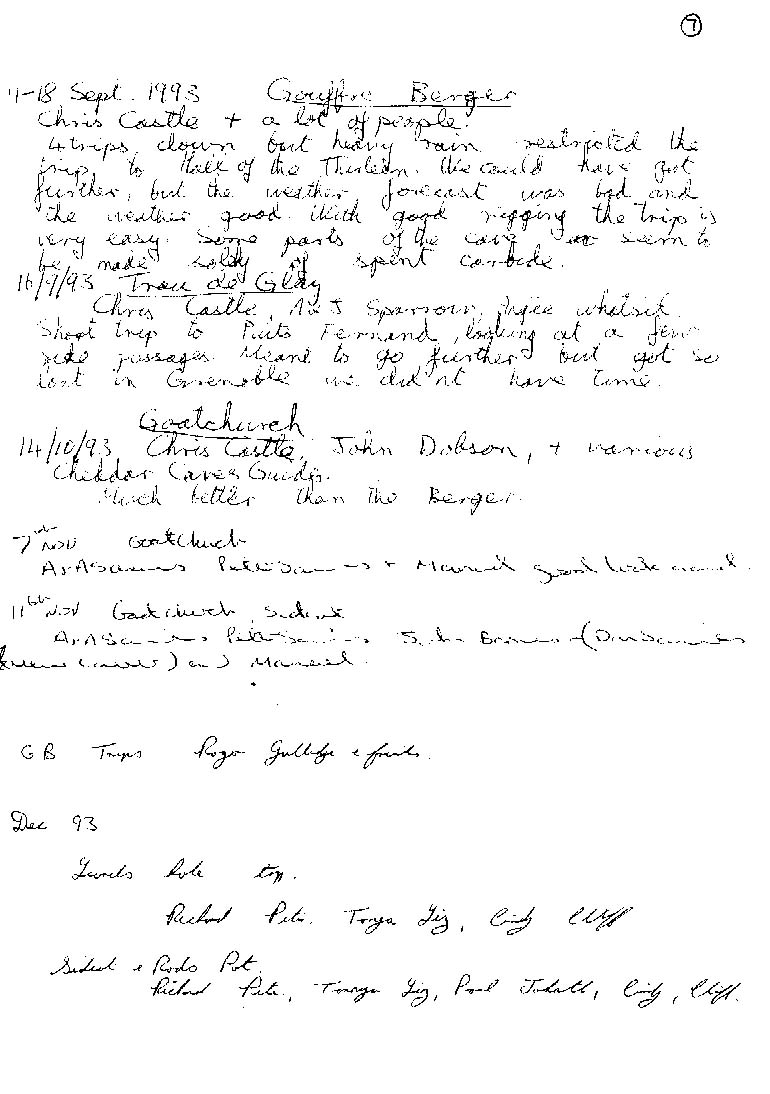 7
11-18 Sept. 1993 Gouffre Berger
Chris Castle + a lot of people.
4 trips down but heavy rain restricted the
trip to Hall of the Thirteen. We could have got
further, but the weather forecast was bad and
the weather good. With good rigging the trip is
very easy. Some parts of the cave seem to
be made solely of spent carbide.
16/9/93 Trou de Glay
Chris Castle, A & J Sparrow, Angee whatsit.
Short trip to Puits Fernand, looking at a few
side passages. Meant to go further but got so
lost in Grenoble we didn't have time.
Goatchurch
14/10/93 Chris Castle, John Dobson, + various
Cheddar Caves Guides.
Much better than the Berger.
7th Nov Goatchurch
good look around.
11th Nov Goatchurch, Sidcot
and
GB Trips Roger
Dec 93
Hole trip.
Richard Pete, Tonya Liz, Cindy Cliff
Sidcot & Rods Pot
Richard Pete, Tonya Liz, Paul, Cindy, Cliff.